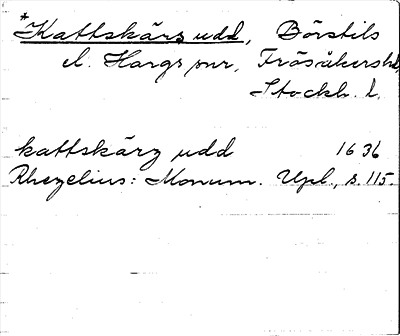 *Kattskärs udd, Börstils
el. Hargs snr, Frösåkers hd,
Stockh. l.
kattskärz udd 1636
Rhezelius: Monum. Upl., s. 115.